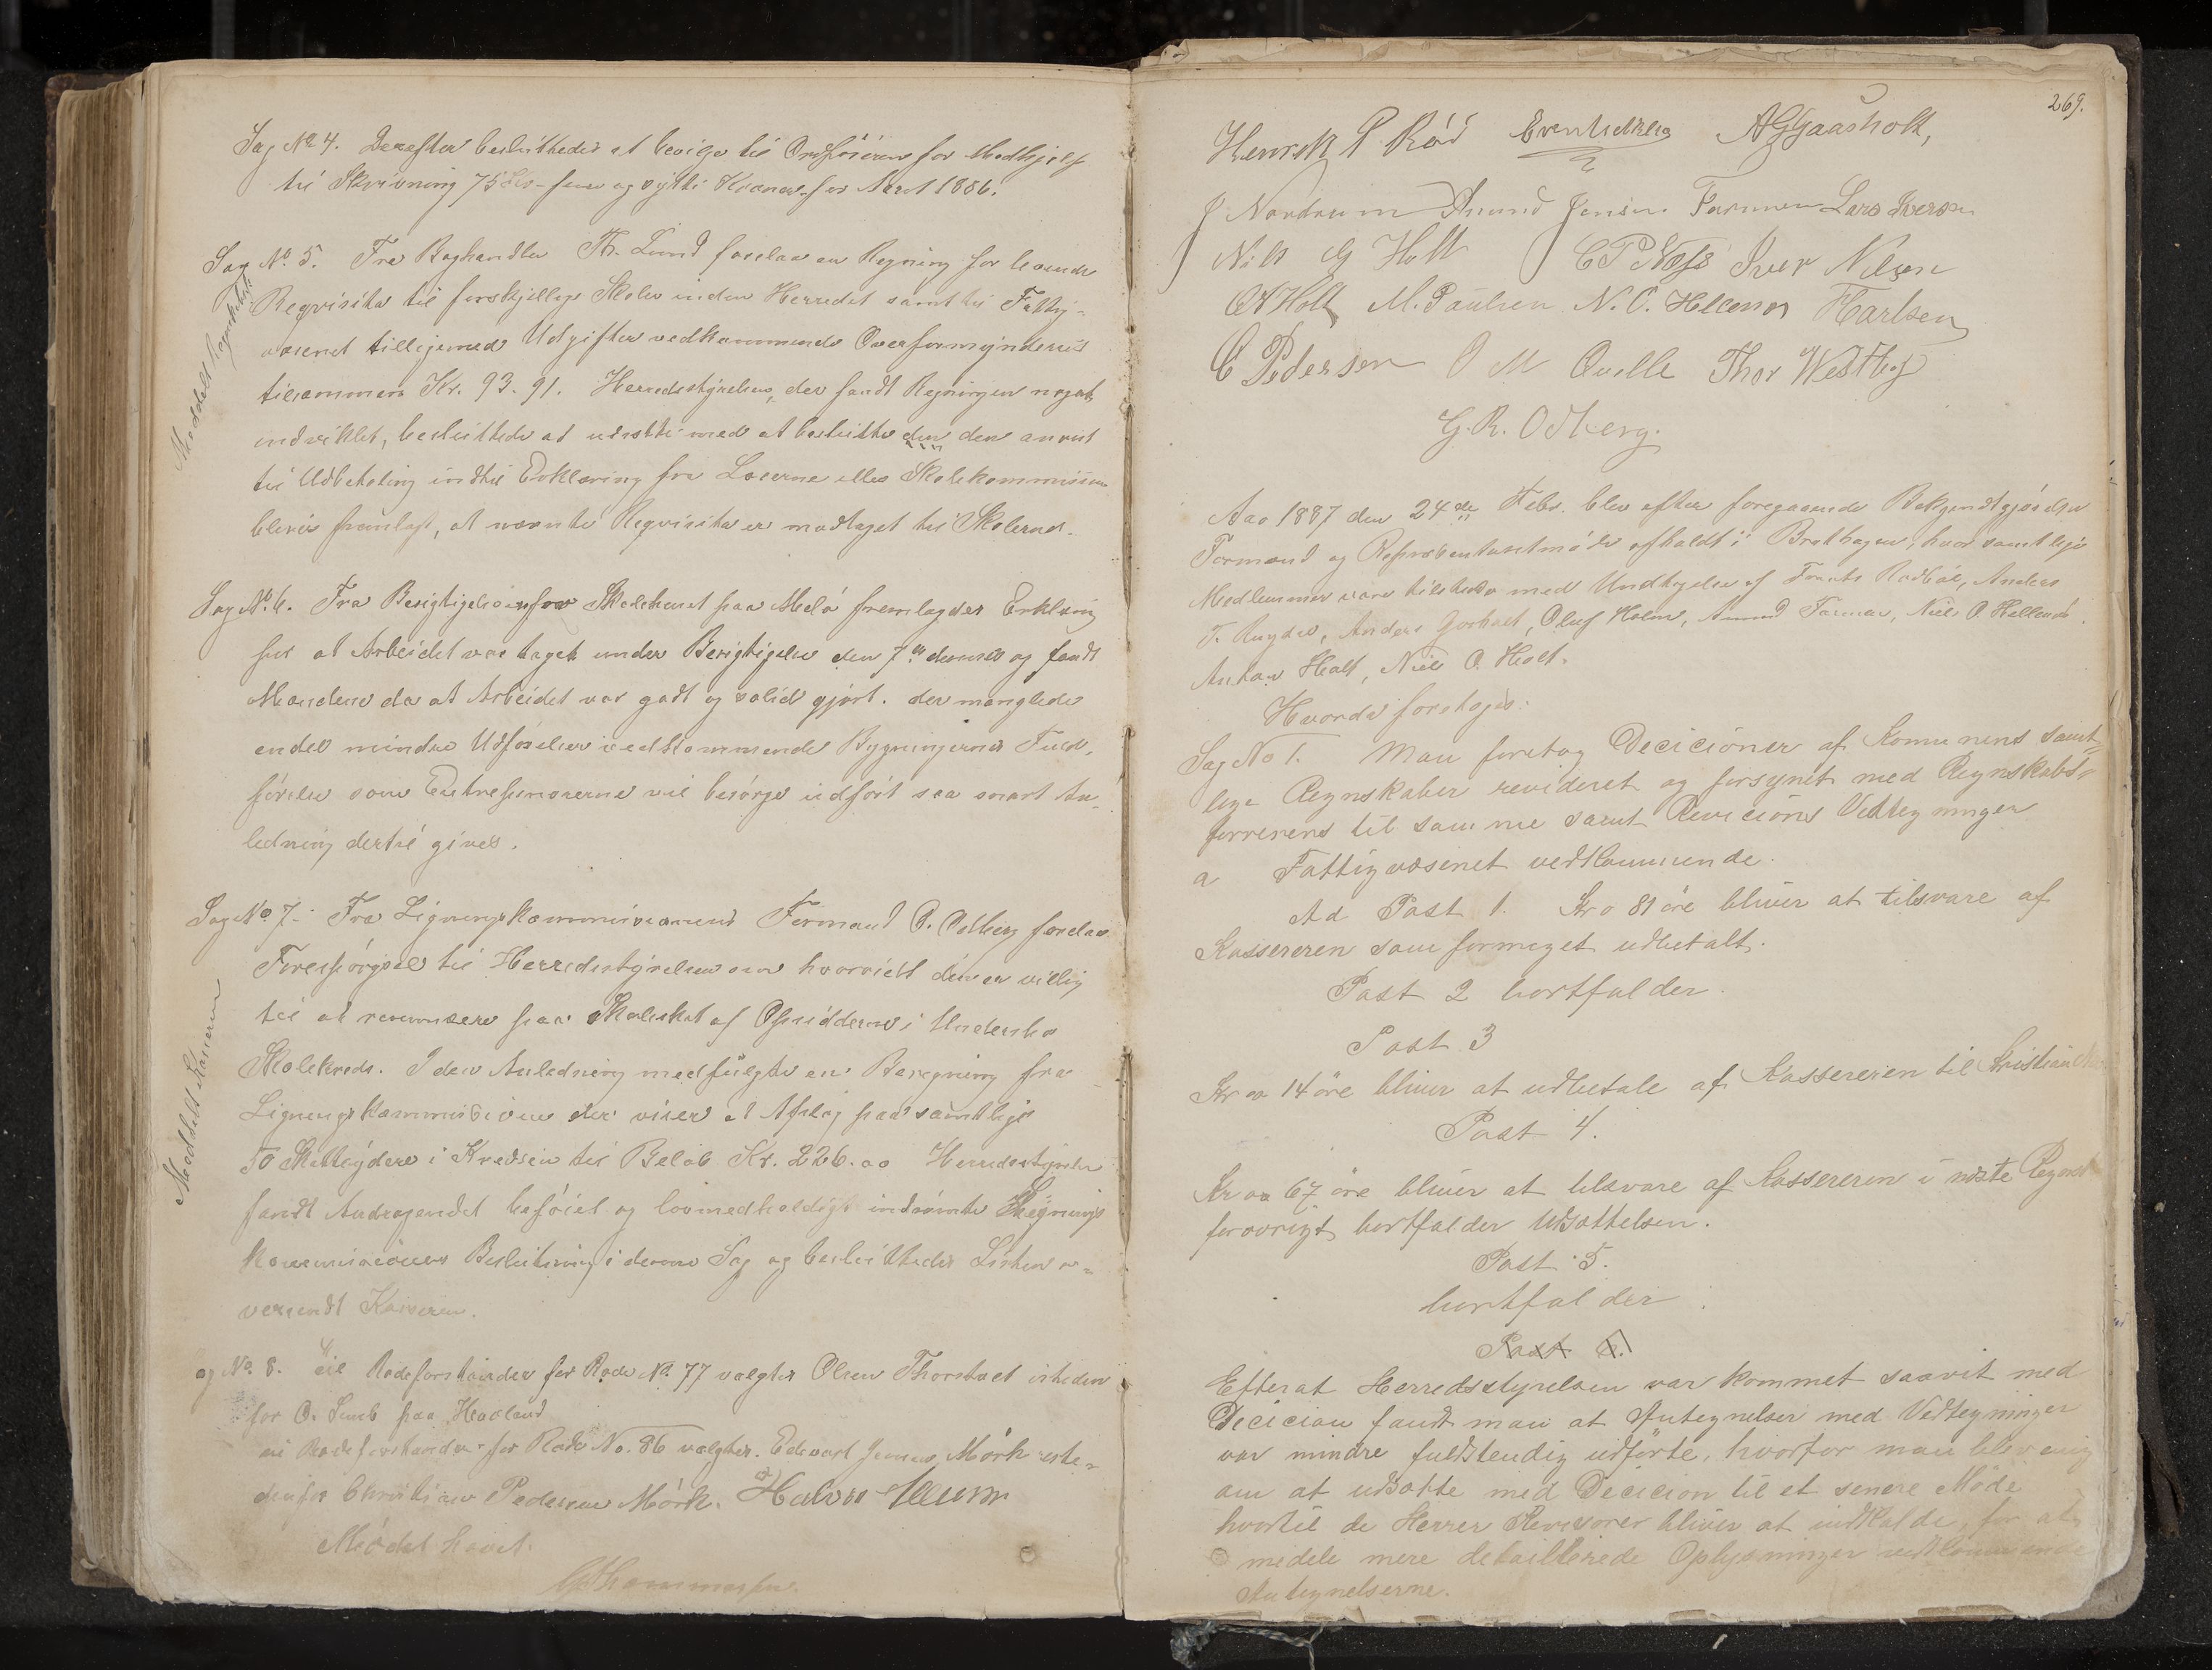 Sag No 4. Derefter besluttedes at bevilge til Ordføreren for Medhjelp
til Skrivning 75 Kr - fem og sytti Kroner - for Aaret 1886.
Sag No. 5. Fra Boghandler Th. Lund forelaa en Regning for leverede
Reqvisita til forskjellige Skoler inden Herredet samt til Fattig-
væsenet tilligemed Udgifter vedkommende Overformynderiet
tilsammen Kr. 93.91. Herredsstyrelsen, der fandt Regningen noget
indviklet, besluttede at udsætte med at beslutte den den anvist
til Udbetaling indtil Erklæring fra Lærerne eller Skolekommissionen
blev fremlagt, at nævnte Reqvisita er modtaget til Skolerne.
Meddelt
Sag No. 6. Fra Besigtigelsen for Skolehuset paa Melø fremlagdes Erklæring
for at Arbeidet var taget under Besigtigelse den 7de dennes og fandt
Mændene da at Arbeidet var godt og solid gjort. der manglede
endel mindre Udførelser vedkommende Bygningernes
førelse som Entreprenørerne vil besørge udført saa snart An-
ledning dertil gives.
Sag No. 7. Fra Ligningskommissionens Formand O. Odberg forelaa
Forespørgsel til Herredsstyrelsen om hvorvidt den er villig
til at paa Skoleskat af Opsidderne i Undersbo
Skolekreds. I den Anledning medfulgte en Beregning fra
Ligningskommissionen der viser at Afslag paa samtlige
50 Skatteydere i Kredsen til Beløb Kr. 226.00 Herredsstyrelsen
fandt Andragendet beføiet og lovmedholdigt indrømte Ligning
kommissionens Beslutning i denne Sag og besluttedes Listen o-
versendt Kasseren.
Meddelt Kasseren
ag No. 8. Til Rodeforstander for Rode No. 77 valgtes Olsen Thorstvet isteden
for O. paa Havland
til Rodeforstander for Rode No. 86 valgtes Edevart Jensen Mørk iste-
den for Christian Pedersen Mørk. Halvor
Mødet hævet.
G Thommesen
269.
Henrik P Rød AGGaasholt,
J Nordrum Amund Jensen Farmen Lars Iverson
Nils G Holt C P Næss Iver Nilsen
OAHolt M. Paulsen N. O. Hellenes TKarlsen
C Pedersen O M Qvelle Thor Westby
G. R. Odberg.
Aar 1887 den 24de Febr. blev efter foregaaende Bekjendtgjørelse
Formænd og Repræsentantmøde afholdt i Brathagen, hvor samtlige
Medlemmer vare tilstede med Undtagelse af Frants Rødbøl, Anders
T. Rugden, Anders Gjorholt, Oluf Holm, Amund Farmen, Niels O. Hellenes,
Anton Holt, Niels O. Holt.
Hvorda foretoges:
Sag No 1. Man foretog Decicioner af Komunens samt-
lige Regnskaber revideret og forsynet med Regnskabs-
førrerens til samme samt Revicions Vedtegninger
a Fattigvæsenet vedkommende.
Ad Post 1. Kr 0 81 øre bliver at tilsvare af
Kassereren som formeget udbetalt.
Post 2 bortfalder.
Post 3
Kr oo 14 øre bliver at udbetale af Kassereren til
Post 4.
Kr oo 67 øre bliver at tilsvare af Kassereren i næste Regnsk
forøvrigt bortfalder Udsættelsen.
Post 5.
bortfalder.
Post 6.
Efterat Herredsstyrelsen var kommet saavit med
Decicion fandt man at Antegnelser med Vedtegninger
var mindre fuldstendig udførte, hvorfor man blev enig
om at udsætte med Decicion til et senere Møde
hvortil de Herrer Revisorer bliver at indkalde, for at
medele mere detaillerede Oplysninger vedkommende
Antegnelserne.